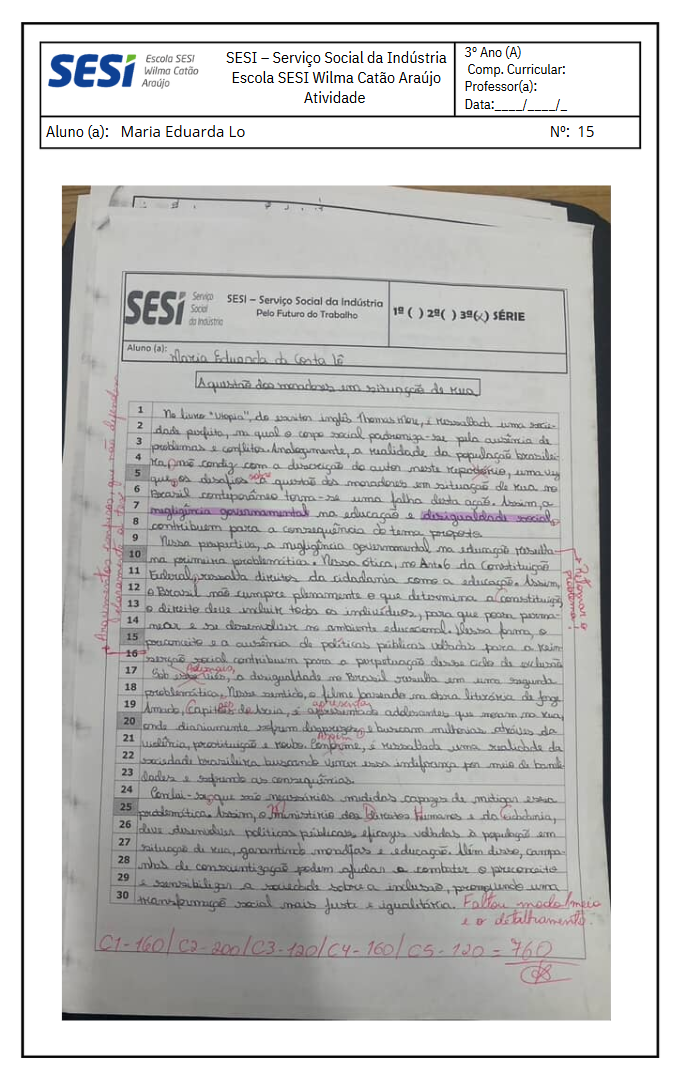 SESI
Escola SESI
Wilma Catão
Araújo
SESI – Serviço Social da Indústria
Escola SESI Wilma Catão Araújo
Atividade
3º Ano (A)
Comp. Curricular:
Professor(a):
Data:____/____/_
Aluno (a): Maria Eduarda Lo Nº: 15
SESI
Serviço
Social
da Indústria
SESI – Serviço Social da Indústria
Pelo Futuro do Trabalho
1ª ( ) 2ª( ) 3ª(x) SÉRIE
Aluno (a): Maria Eduarda da Costa Lô
A questão dos moradores em situação de rua
1 No livro "Utopia", do escritor inglês Thomas More, é ressaltada uma socie-
2 dade perfeita, na qual o corpo social padroniza-se pela ausência de
3 problemas e conflitos. Analogamente, a realidade da população brasilei-
4 ra, não condiz com a descrição do autor neste repertório, uma vez
5 que, os desafios sobre a questão dos moradores em situação de rua no
6 Brasil contemporâneo torna-se uma falha desta ação. Assim, a
7 negligência governamental na educação e desigualdade social,
8 contribuem para a consequência do tema proposto.
9 Nessa perspectiva, a negligência governamental na educação resulta
10 na primeira problemática. Nessa ótica, no Art. 6 da Constituição
11 Federal, ressalta direitos da cidadania como a educação. Assim,
12 o Brasil não cumpre plenamente o que determina a constituição,
13 o direito deve incluir todos os indivíduos, para que possa perma-
14 necer e se desenvolver no ambiente educacional. Dessa forma, o
15 preconceito e a ausência de políticas públicas voltadas para a rein-
16 serção social contribuem para a perpetuação desse ciclo de exclusão
Ademais,
17 Sob esse viés, a desigualdade no Brasil resulta em uma segunda
18 problemática. Nesse sentido, o filme baseado na obra literária de Jorge
apresenta
19 Amado, Capitães de Areia, é apresentado adolescentes que moram na rua,
20 onde diariamente sofrem desprezos e buscam melhorias através da
Assim
21 violência, prostituição e roubo. Conforme, é ressaltada uma realidade da
22 sociedade brasileira buscando vencer essa indiferença por meio de bonda-
23 dades e sofrendo as consequências.
24 Conclui-se, que são necessárias medidas capazes de mitigar essa
25 problemática. Assim, o Ministério dos Direitos Humanos e da Cidadania,
26 deve desenvolver políticas públicas eficazes voltadas à população em
27 situação de rua, garantindo moradias e educação. Além disso, campa-
28 nhas de conscientização podem ajudar a combater o preconceito
29 e sensibilizar a sociedade sobre a inclusão, promovendo uma
30 transformação social mais justa e igualitária.
Faltou modo/meio
e o detalhamento.
Argumentos confusos, que não defendem
claramente a tese
Retomar o
problema!
C1-160/C2-200/C3-120/C4-160/C5-120 = 760